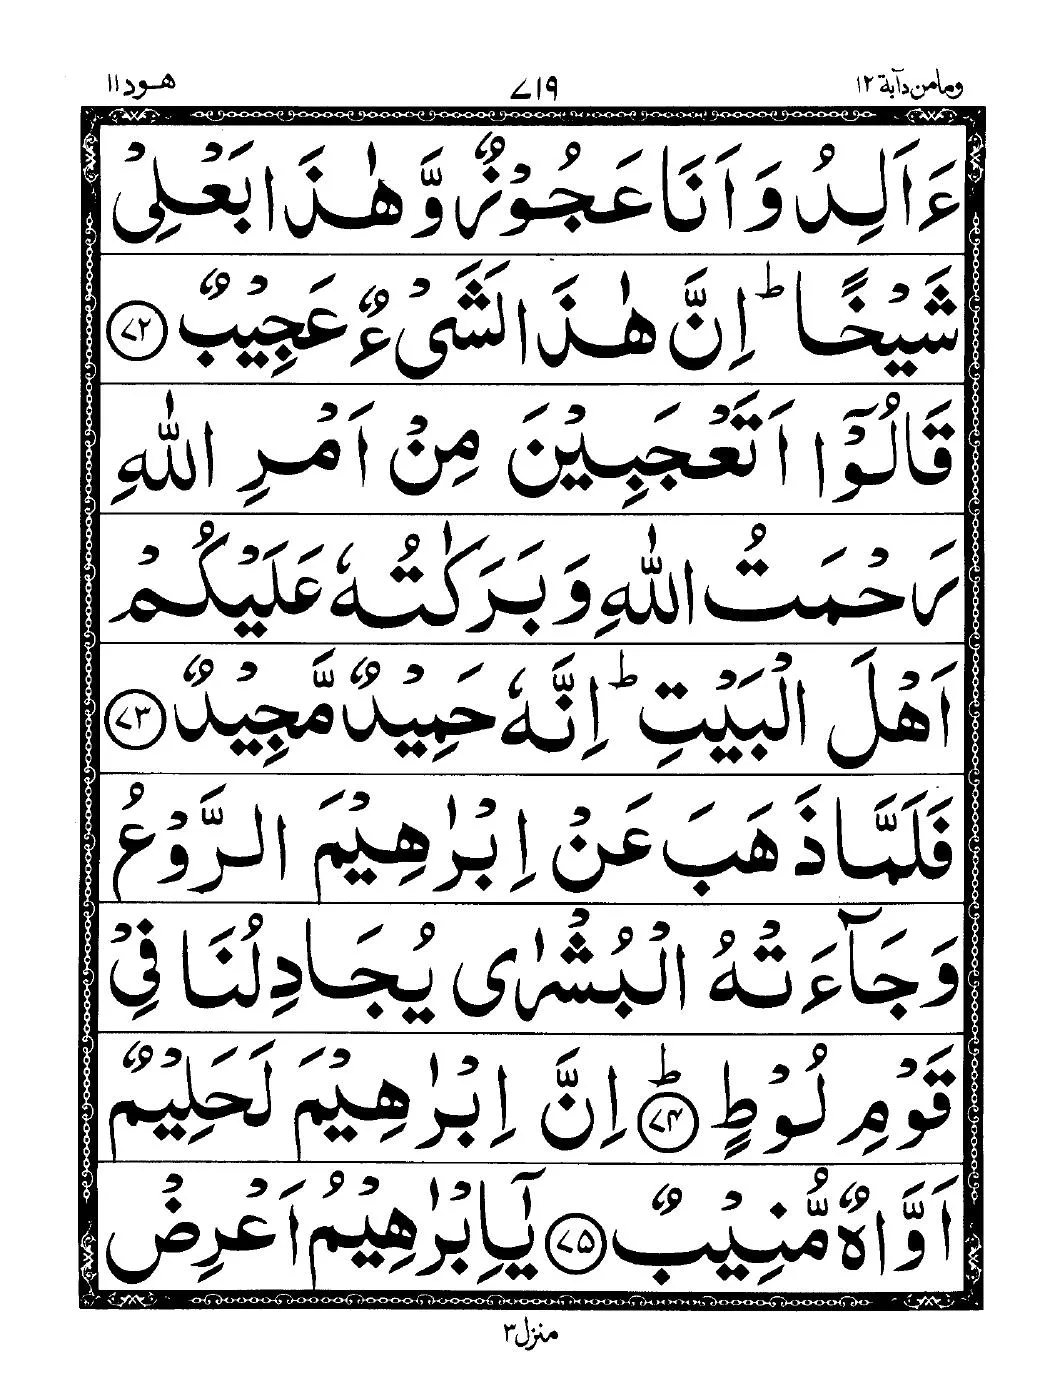 وما من دآبة ١٢ ٧١٩ هود ١١
ءَاَلِدُ وَاَنَا عَجُوْزٌ وَّهٰذَا بَعْلِيْ
شَيْخًا ؕ اِنَّ هٰذَا لَشَيْءٌ عَجِيْبٌ ﴿٧٢﴾
قَالُوْۤا اَتَعْجَبِيْنَ مِنْ اَمْرِ اللّٰهِ
رَحْمَتُ اللّٰهِ وَبَرَكٰتُهٗ عَلَيْكُمْ
اَهْلَ الْبَيْتِ ؕ اِنَّهٗ حَمِيْدٌ مَّجِيْدٌ ﴿٧٣﴾
فَلَمَّا ذَهَبَ عَنْ اِبْرٰهِيْمَ الرَّوْعُ
وَجَآءَتْهُ الْبُشْرٰى يُجَادِلُنَا فِيْ
قَوْمِ لُوْطٍ ؕ ﴿٧٤﴾ اِنَّ اِبْرٰهِيْمَ لَحَلِيْمٌ
اَوَّاهٌ مُّنِيْبٌ ﴿٧٥﴾ يٰۤاِبْرٰهِيْمُ اَعْرِضْ
منزل ٣